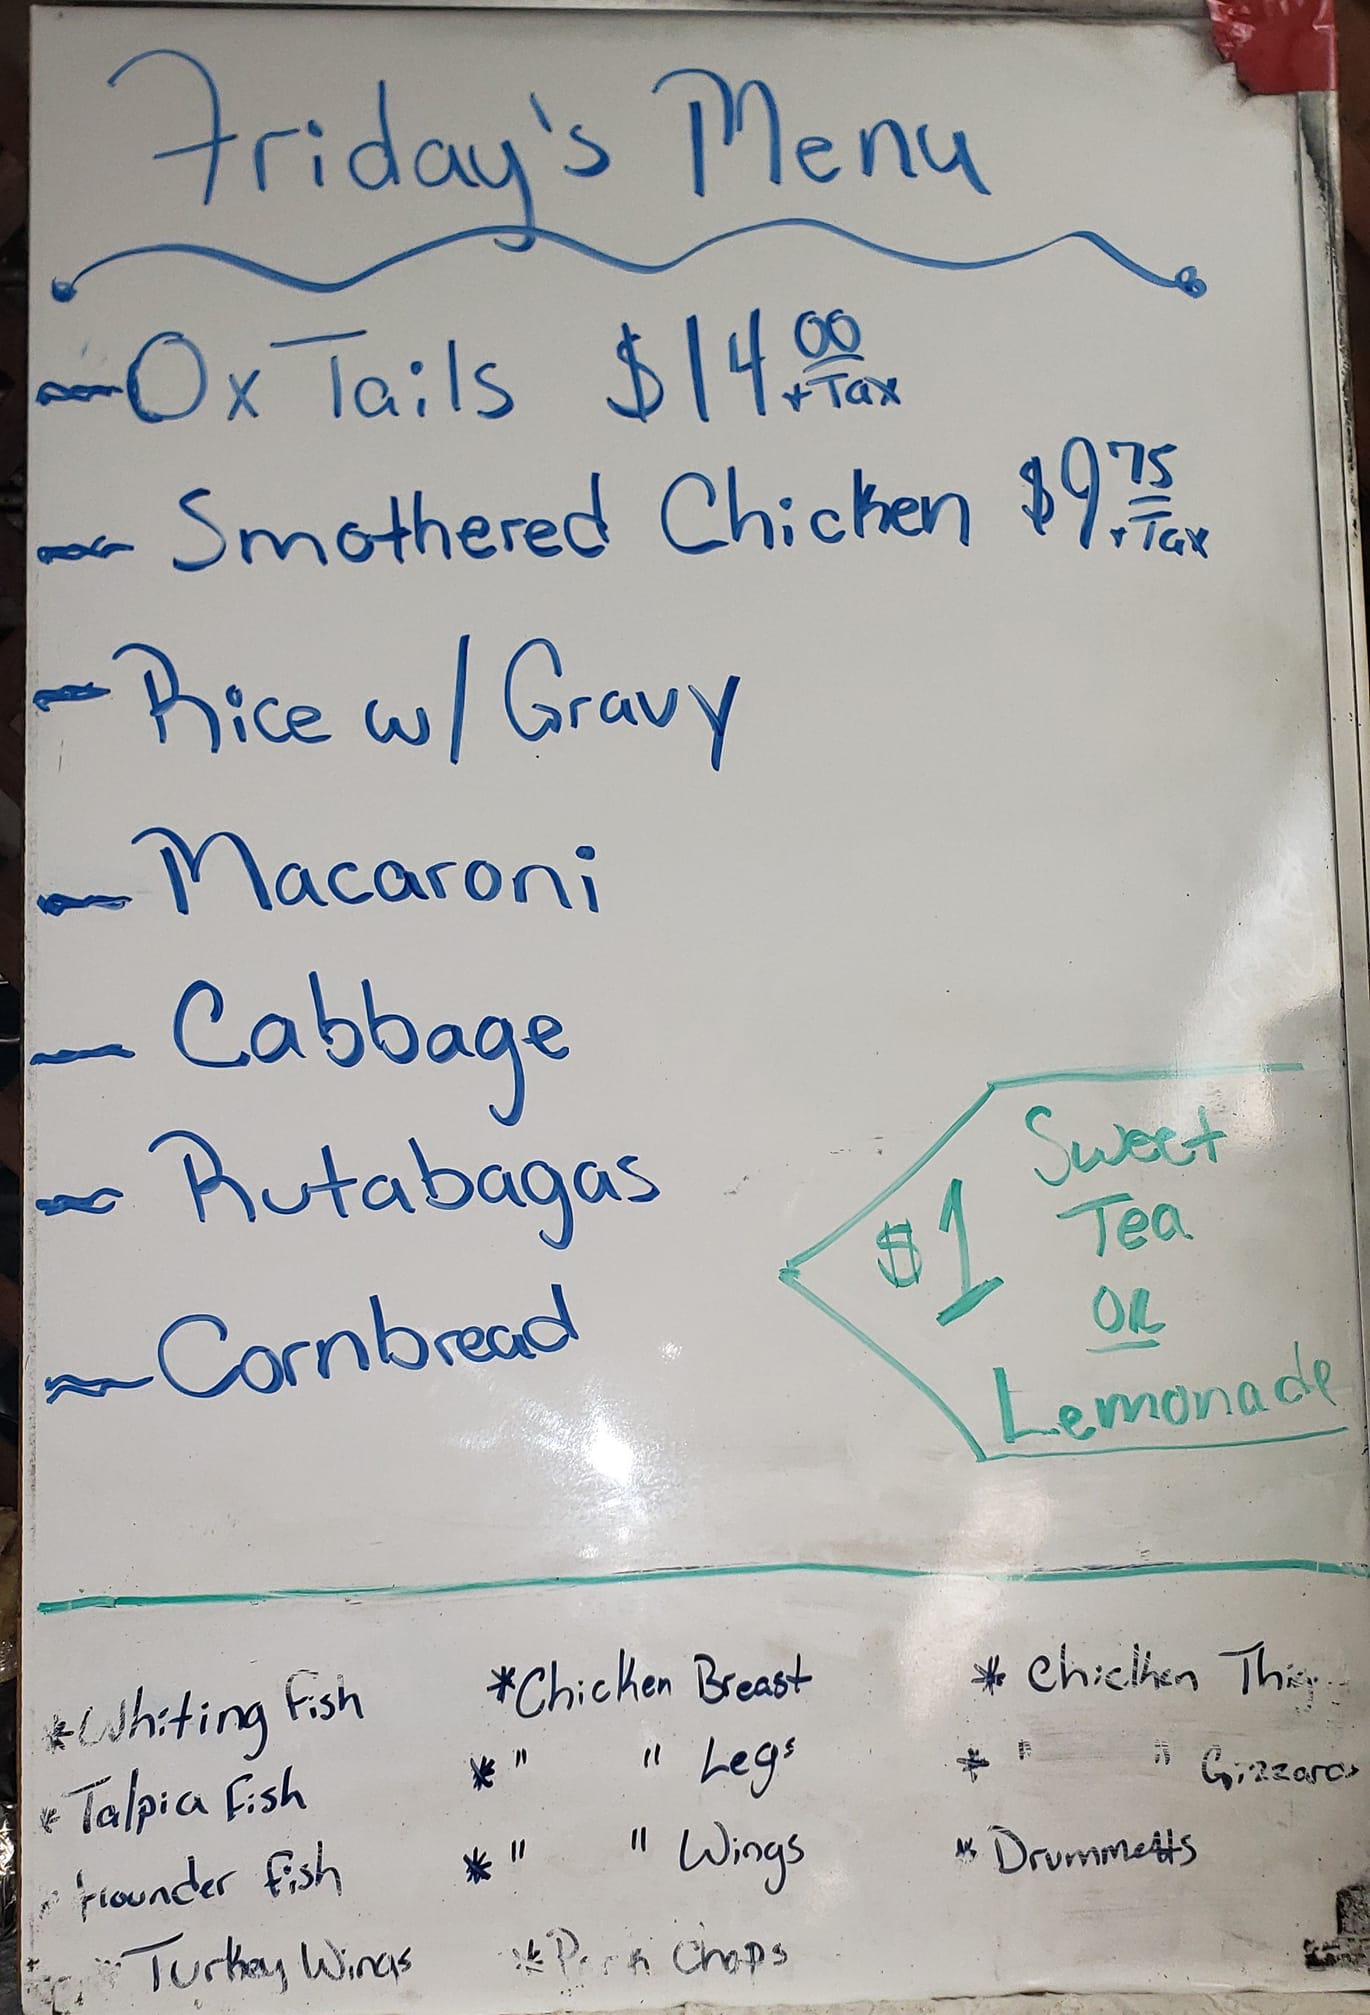 Friday's Menu
Ox Tails $14.00 + Tax
Smothered Chicken $9.75 + Tax
Rice w/ Gravy
Macaroni
Cabbage
Rutabagas
Cornbread
$1
Sweet
Tea
OR
Lemonade
*Whiting Fish
*Talpia Fish
Flounder Fish
Turkey Wings
*Chicken Breast
*" " Legs
*" " Wings
*Pork Chops
*Chicken
*" "
*Drummetts